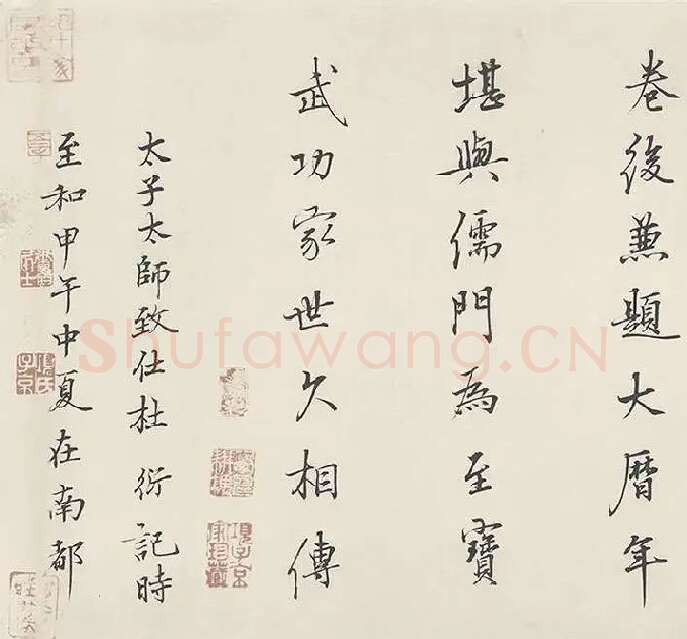 卷後兼題大曆年
堪與儒門為至寶
武功家世久相傳
太子太師致仕杜衍記時
至和甲午中夏在南都
Shufawang.CN
項子京